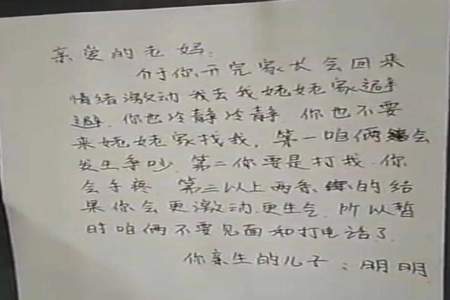 亲爱的老妈:
介于你开完家长会回来
情绪激动我去我姥姥家逼避
避. 你也冷静冷静. 你也不要
来姥姥家找我, 第一咱俩会
发生争吵. 第二你要是打我. 你
会手疼 第三以上两条的结
果你会更激动.更生气. 所以暂
时咱俩不要见面和打电话了.
你亲生的儿子: 明明